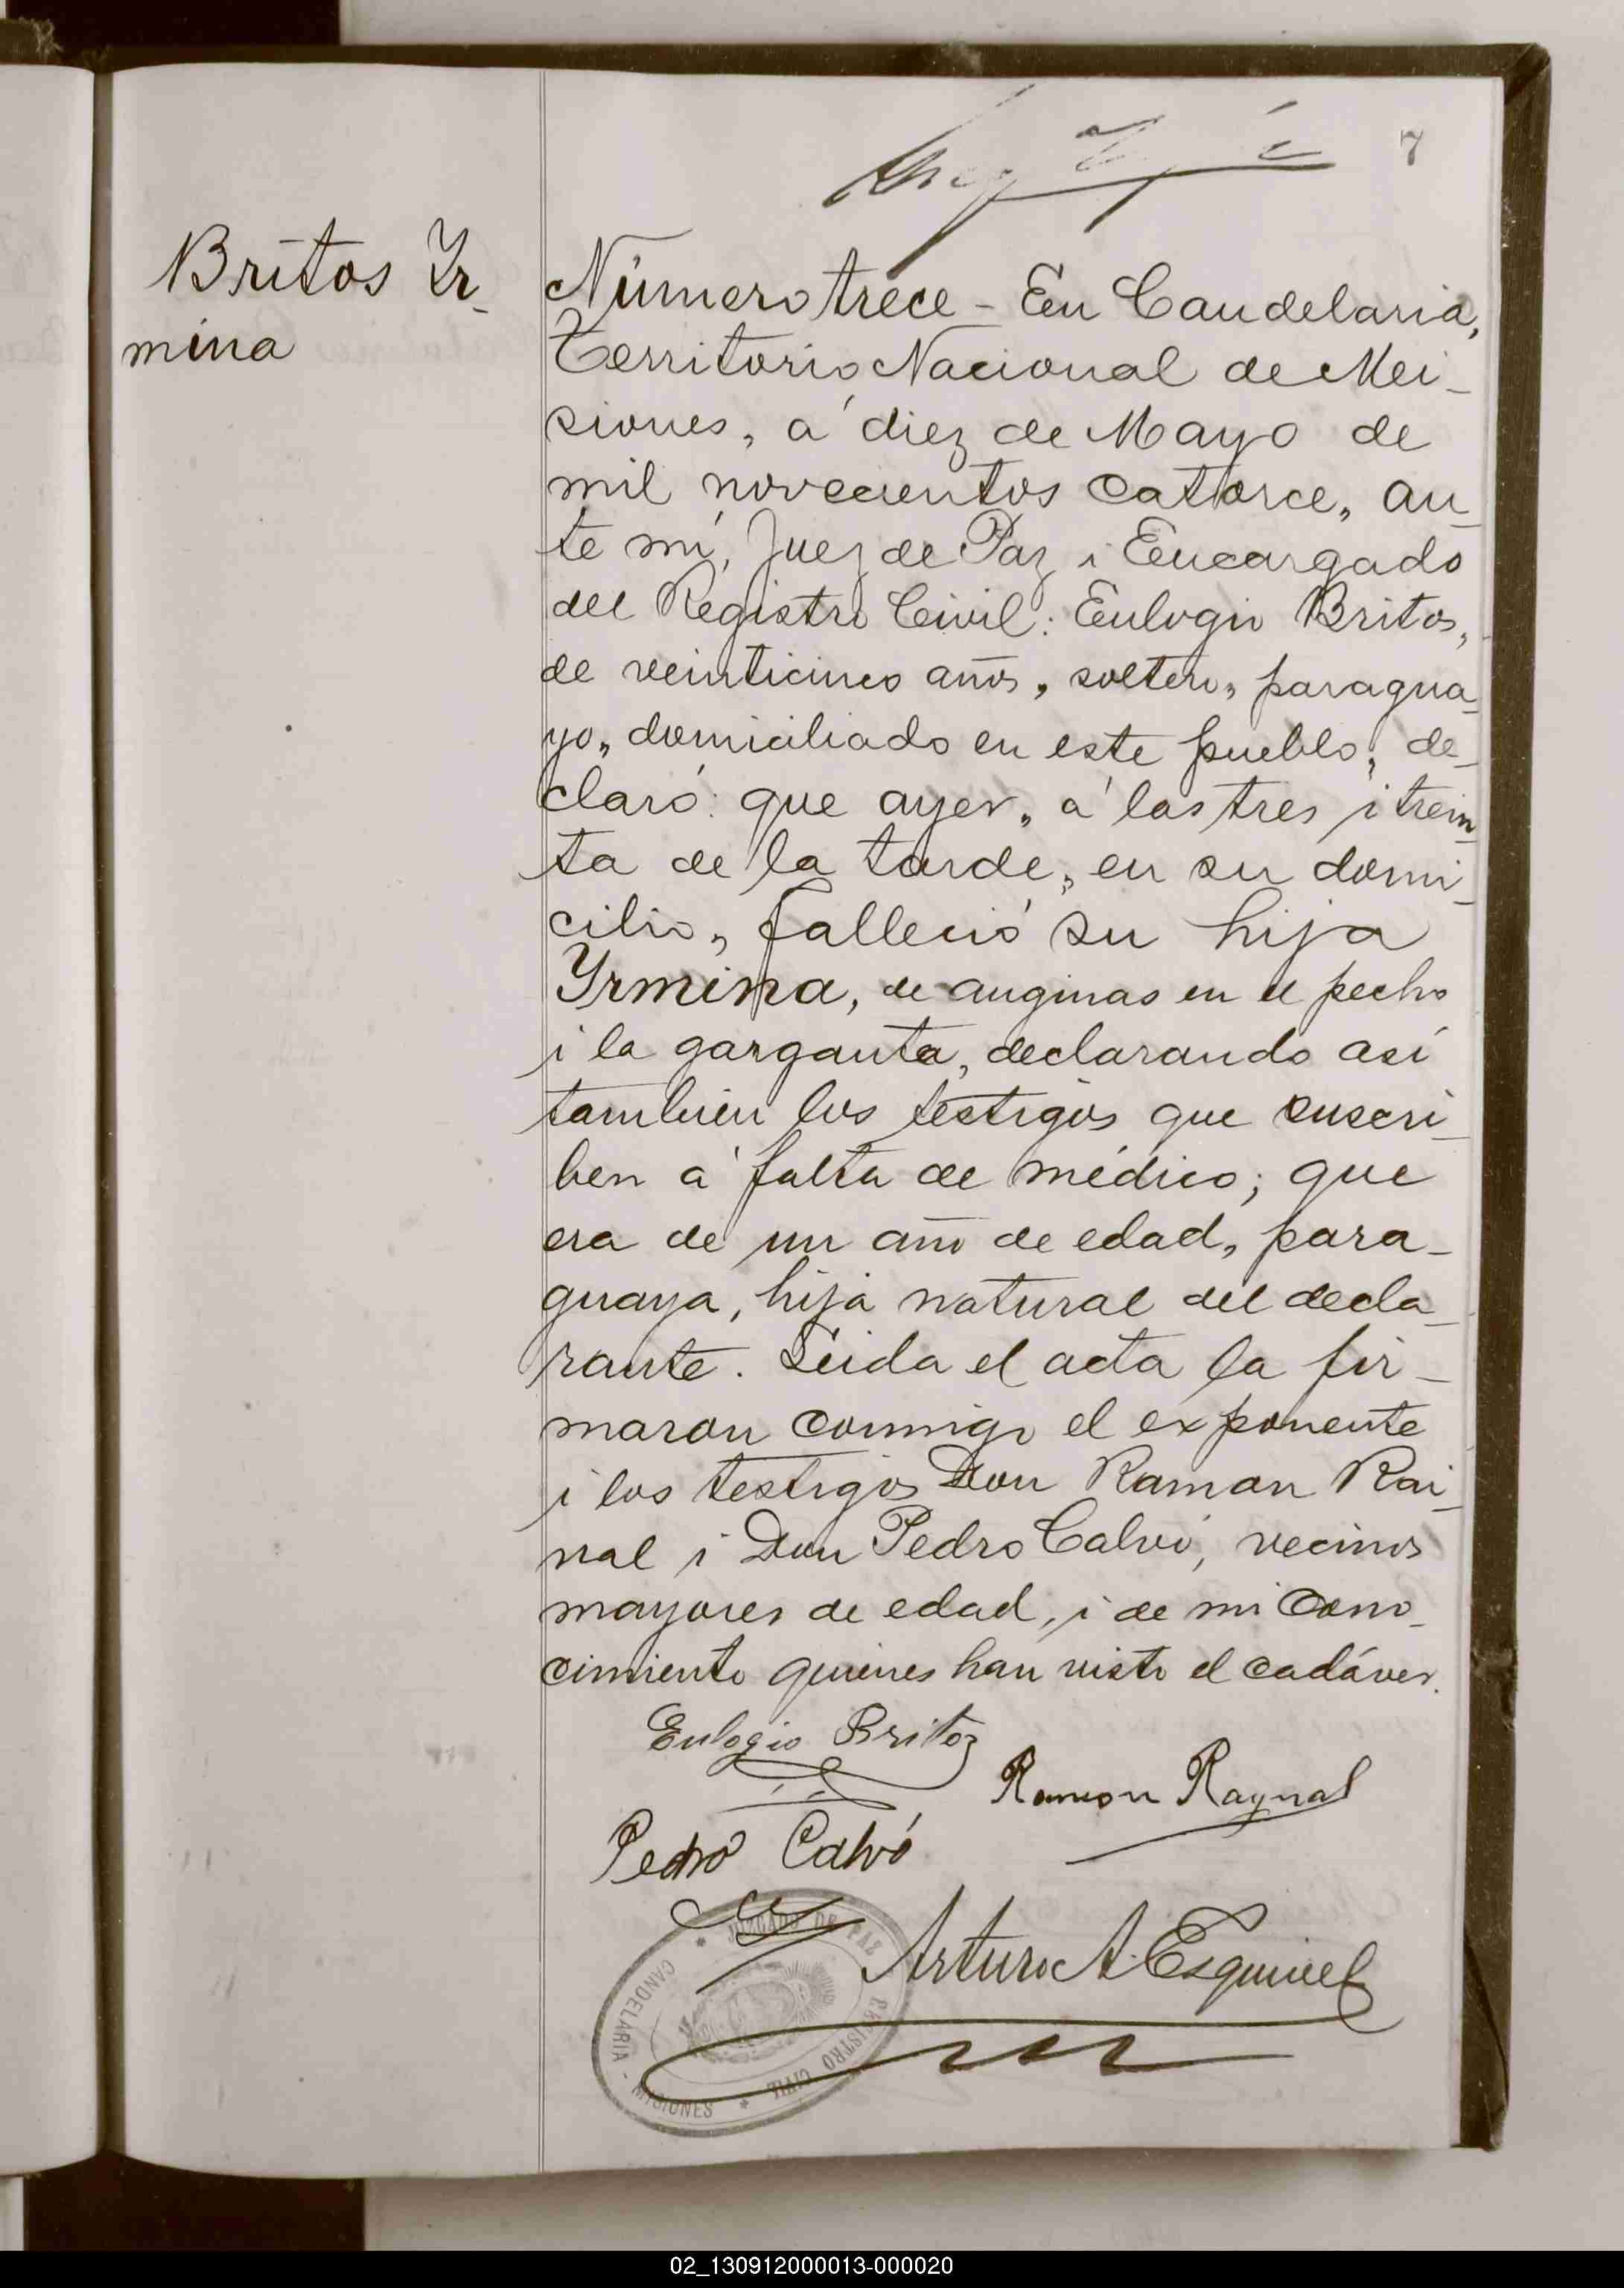 7
Britos Yr-
mina
Número trece - En Candelaria,
Territorio Nacional de Mi-
siones, á diez de Mayo de
mil novecientos catorce, an-
te mí, Juez de Paz i Encargado
del Registro Civil: Eulogio Britos,
de veinticinco años, soltero, paragua-
yo, domiciliado en este pueblo, de-
claró: que ayer, á las tres i trein-
ta de la tarde, en su domi-
cilio, falleció su hija
Yrmina, de anginas en el pecho
i la garganta, declarando así
tambien los testigos que suscri-
ben á falta de médico; que
era de un año de edad, para-
guaya, hija natural del decla-
rante. Leida el acta la fir-
maron conmigo el exponente
i los testigos Don Ramon Rai-
nal i Don Pedro Calvó, vecinos
mayores de edad, i de mi cono-
cimiento quienes han visto el cadáver.
Eulogio Britoz
Ramon Raynal
Pedro Calvó
Arturo A. Esquivel
JUZGADO DE PAZ
REGISTRO CIVIL
CANDELARIA - MISIONES
02_130912000013-000020